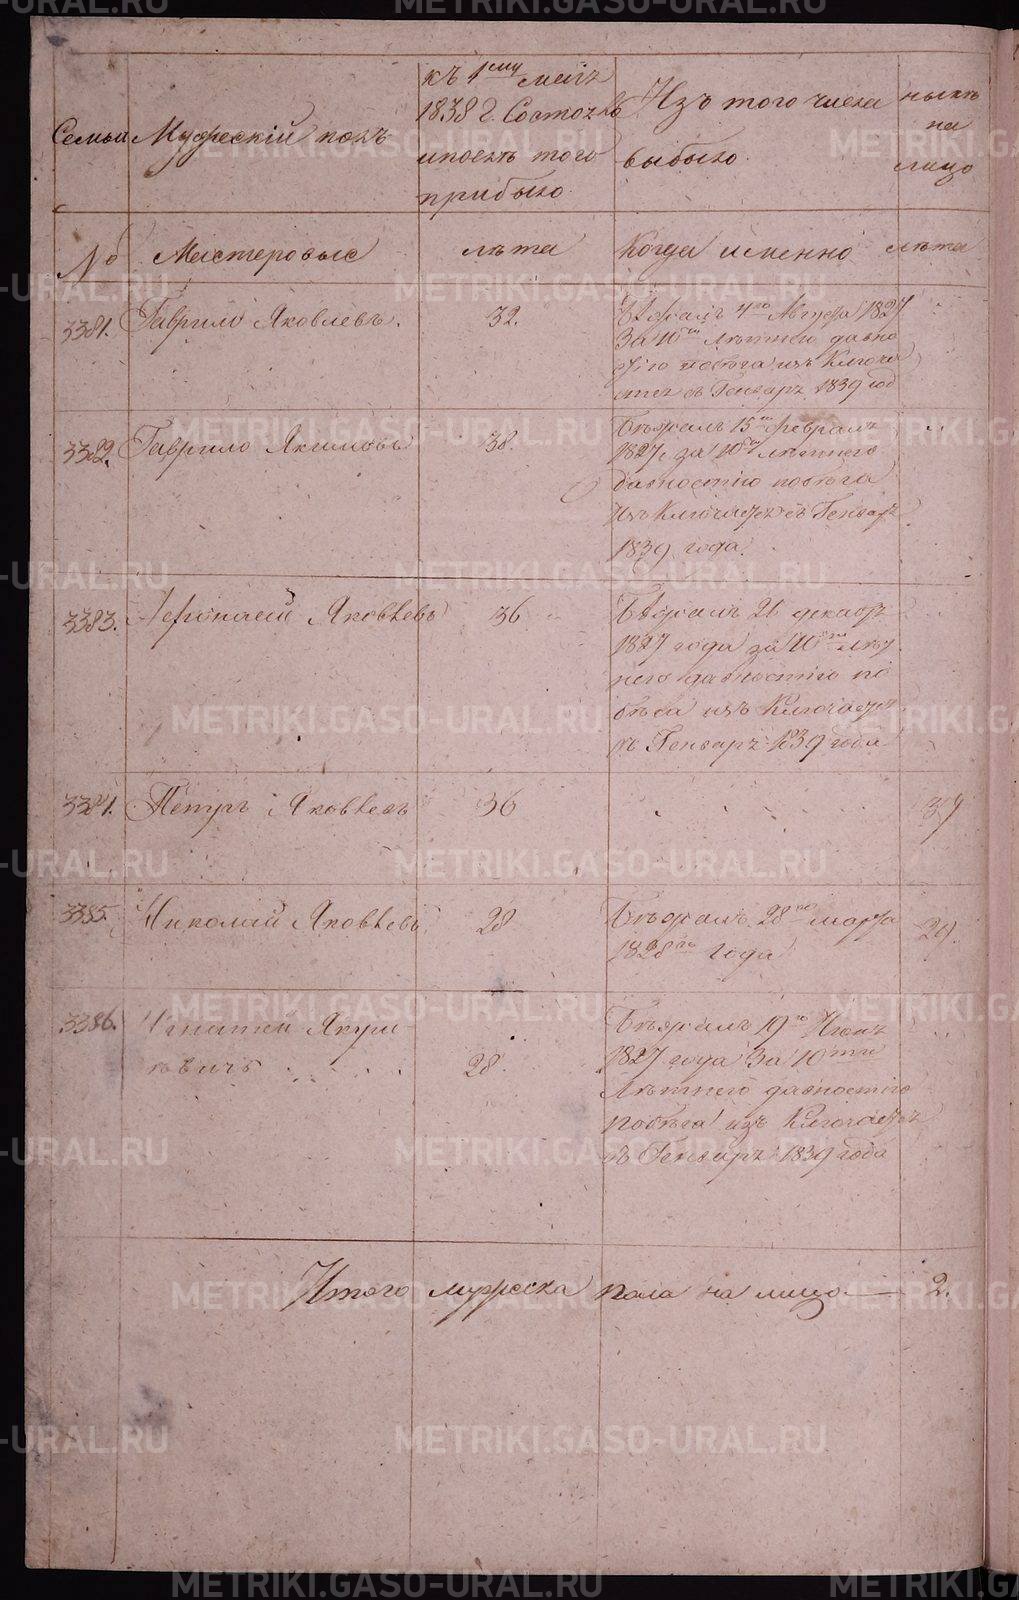 Семьи
Мужескій полъ
къ 1му маія
1838 г. Состояло
и послѣ того
прибыло.
Изъ того числа
выбыло.
нынѣ
на
лицо
№
Мастеровые
лѣта
Когда именно
лѣта
3381.
Гаврило Яковлевъ.
32.
Бѣжалъ 4го Августа 1827
За 10ти лѣтнею давно
стію побѣга изъ Ключа
въ Генварѣ 1839 год
3382.
Гаврило Якимовъ
38.
Бѣжалъ 15го февраля
1827, за 10ти лѣтнею
давностію побѣга
изъ въ Генварѣ
1839 года.
3383.
Яковлевъ
36
Бѣжалъ 21 декабря
1827 года за 10ти лѣт
нею давностію по
бѣга изъ
въ Генварѣ 1839 года
3384.
Пётръ Яковлевъ
36
37
3385.
Николай Яковлевъ
28
Бѣжалъ 28го марта
1828го года
29.
3386.
Игнатей Якуш
кевичъ . . . .
28.
Бѣжалъ 19го Июня
1827 года За 10ти
Лѣтнею давностію
побѣга изъ
въ Генварѣ 1839 года
Итого мужеска пола на лицо — 2.
METRIKI.GASO-URAL.RU